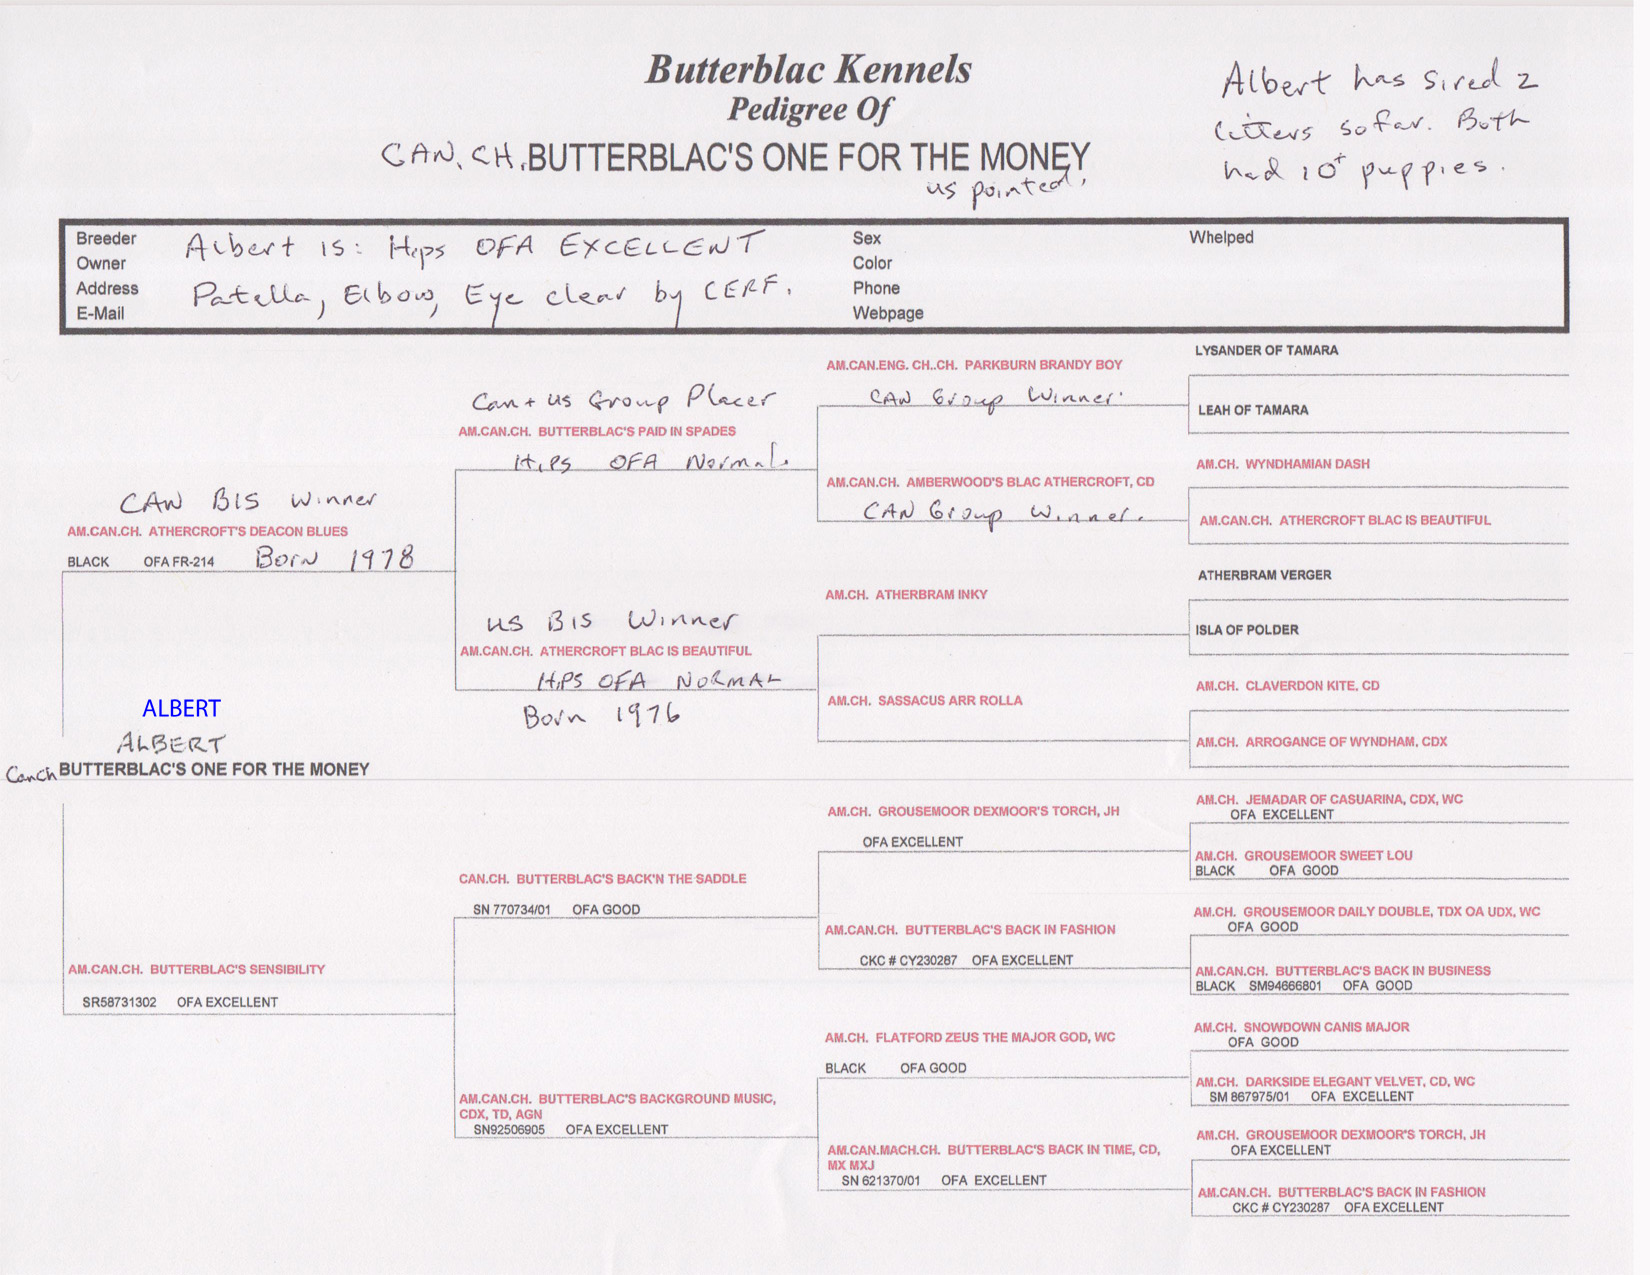 Butterblac Kennels
Pedigree Of
CAN. CH. BUTTERBLAC'S ONE FOR THE MONEY
us pointed,
Albert has sired 2
litters so far. Both
had 10+ puppies.
Breeder
Owner
Address
E-Mail
Albert is: Hips OFA EXCELLENT
Patella, Elbow, Eye clear by CERF.
Sex
Color
Phone
Webpage
Whelped
CAN BIS Winner
AM.CAN.CH. ATHERCROFT'S DEACON BLUES
BLACK OFA FR-214 Born 1978
ALBERT
ALBERT
Can ch BUTTERBLAC'S ONE FOR THE MONEY
AM.CAN.CH. BUTTERBLAC'S SENSIBILITY
SR58731302 OFA EXCELLENT
Can + US Group Placer
AM.CAN.CH. BUTTERBLAC'S PAID IN SPADES
Hips OFA Normal.
US BIS Winner
AM.CAN.CH. ATHERCROFT BLAC IS BEAUTIFUL
HIPS OFA NORMAL
Born 1976
CAN.CH. BUTTERBLAC'S BACK'N THE SADDLE
SN 770734/01 OFA GOOD
AM.CAN.CH. BUTTERBLAC'S BACKGROUND MUSIC,
CDX, TD, AGN
SN92506905 OFA EXCELLENT
AM.CAN.ENG. CH..CH. PARKBURN BRANDY BOY
CAN Group Winner.
AM.CAN.CH. AMBERWOOD'S BLAC ATHERCROFT, CD
CAN Group Winner.
AM.CH. ATHERBRAM INKY
AM.CH. SASSACUS ARR ROLLA
AM.CH. GROUSEMOOR DEXMOOR'S TORCH, JH
OFA EXCELLENT
AM.CAN.CH. BUTTERBLAC'S BACK IN FASHION
CKC # CY230287 OFA EXCELLENT
AM.CH. FLATFORD ZEUS THE MAJOR GOD, WC
BLACK OFA GOOD
AM.CAN.MACH.CH. BUTTERBLAC'S BACK IN TIME, CD,
MX MXJ
SN 621370/01 OFA EXCELLENT
LYSANDER OF TAMARA
LEAH OF TAMARA
AM.CH. WYNDHAMIAN DASH
AM.CAN.CH. ATHERCROFT BLAC IS BEAUTIFUL
ATHERBRAM VERGER
ISLA OF POLDER
AM.CH. CLAVERDON KITE, CD
AM.CH. ARROGANCE OF WYNDHAM, CDX
AM.CH. JEMADAR OF CASUARINA, CDX, WC
OFA EXCELLENT
AM.CH. GROUSEMOOR SWEET LOU
BLACK OFA GOOD
AM.CH. GROUSEMOOR DAILY DOUBLE, TDX OA UDX, WC
OFA GOOD
AM.CAN.CH. BUTTERBLAC'S BACK IN BUSINESS
BLACK SM94666801 OFA GOOD
AM.CH. SNOWDOWN CANIS MAJOR
OFA GOOD
AM.CH. DARKSIDE ELEGANT VELVET, CD, WC
SM 867975/01 OFA EXCELLENT
AM.CH. GROUSEMOOR DEXMOOR'S TORCH, JH
OFA EXCELLENT
AM.CAN.CH. BUTTERBLAC'S BACK IN FASHION
CKC # CY230287 OFA EXCELLENT